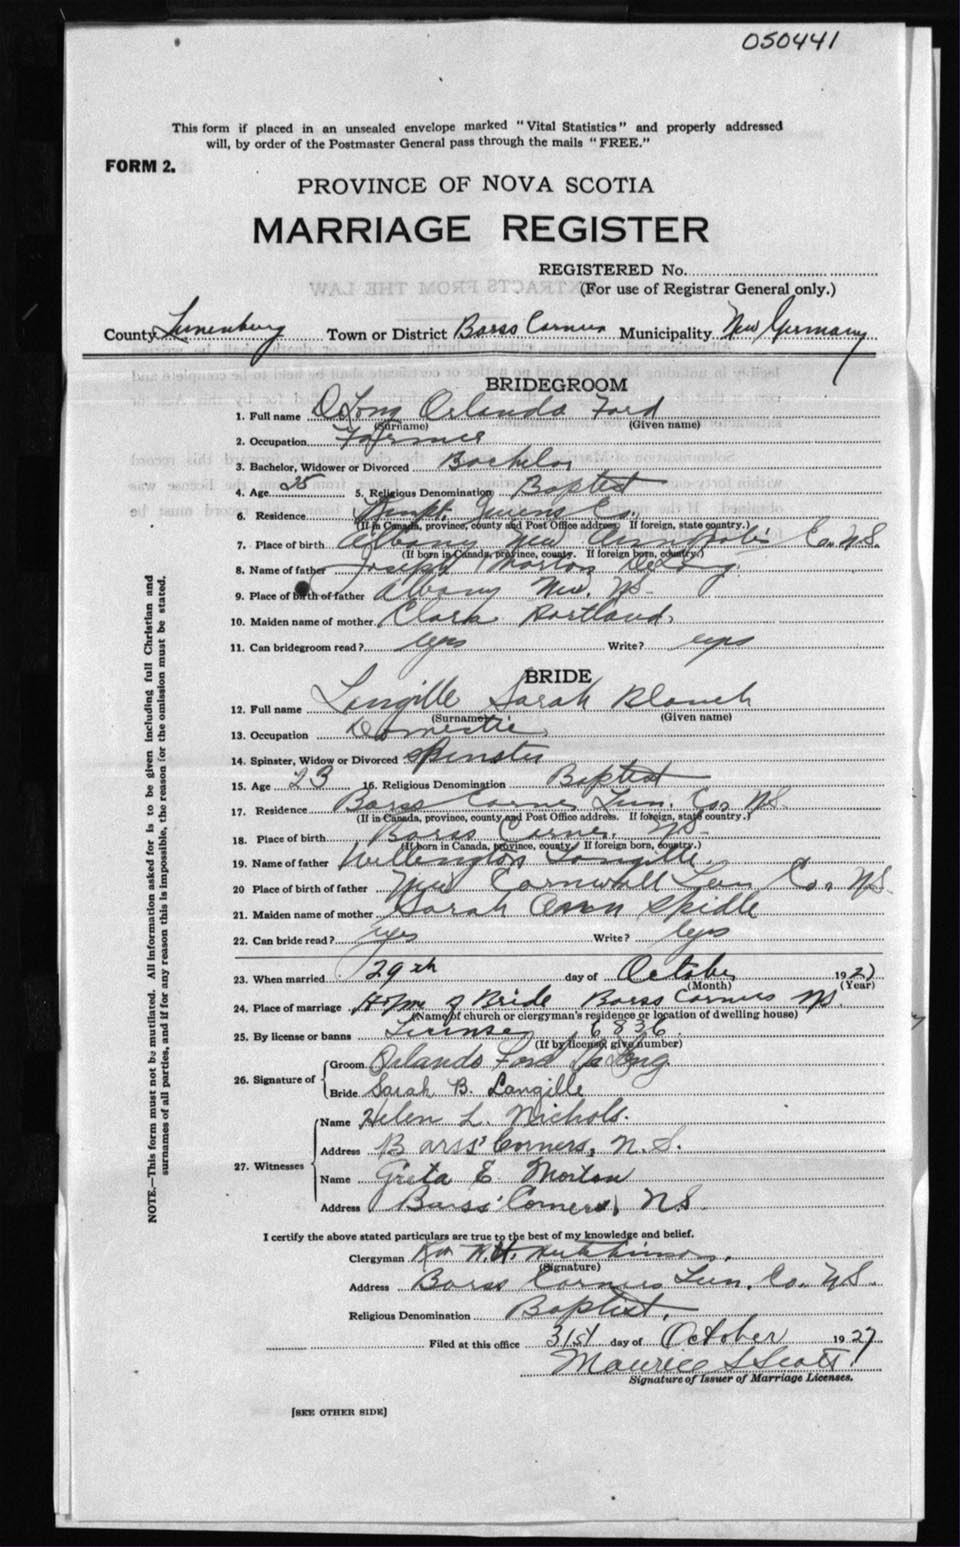 050441
This form if placed in an unsealed envelope marked "Vital Statistics" and properly addressed
will, by order of the Postmaster General pass through the mails "FREE."
FORM 2.
PROVINCE OF NOVA SCOTIA
MARRIAGE REGISTER
REGISTERED No.
(For use of Registrar General only.)
County Lunenburg Town or District Barss Corner Municipality New Germany
BRIDEGROOM
1. Full name DeLong Orlando Ford
(Surname) (Given name)
2. Occupation Farmer
3. Bachelor, Widower or Divorced Bachelor
4. Age 25 5. Religious Denomination Baptist
6. Residence Kempt. Queens Co.
(If in Canada, province, county and Post Office address. If foreign, state country.)
7. Place of birth Albany New Annapolis Co. N.S.
(If born in Canada, province, county. If foreign born, country.)
8. Name of father Joseph Morton DeLong
9. Place of birth of father Albany New. NS.
10. Maiden name of mother Clark
11. Can bridegroom read? yes Write? yes
BRIDE
12. Full name Langille Sarah Blanch
(Surname) (Given name)
13. Occupation Domestic
14. Spinster, Widow or Divorced Spinster
15. Age 23 16. Religious Denomination Baptist
17. Residence Barss Corner Lun. Co. NS.
(If in Canada, province, county and Post Office address. If foreign, state country.)
18. Place of birth Barss Corner. NS.
(If born in Canada, province, county. If foreign born, country.)
19. Name of father Wellington Langille.
20 Place of birth of father New Cornwall Lun Co. NS.
21. Maiden name of mother Sarah Ann Spidle
22. Can bride read? yes Write? yes
23. When married 29th day of October 1927
(Month) (Year)
24. Place of marriage Home of Bride Barss Corners NS.
(Name of church or clergyman's residence or location of dwelling house)
25. By license or banns License 6836.
(If by license, give number)
26. Signature of
Groom Orlando Ford DeLong
Bride Sarah B. Langille
27. Witnesses
Name Helen L. Nichols.
Address Barss' Corners, N.S.
Name Greta E Morton
Address Barss' Corners, NS.
I certify the above stated particulars are true to the best of my knowledge and belief.
Clergyman Rev H.H. Hutchinson.
(Signature)
Address Barss Corners Lun. Co. NS.
Religious Denomination Baptist.
Filed at this office 31st day of October 1927
Maurice S Scott
Signature of Issuer of Marriage Licenses.
[SEE OTHER SIDE]
NOTE.—This form must not be mutilated. All information asked for is to be given including full Christian and
surnames of all parties, and if for any reason this is impossible, the reason for the omission must be stated.